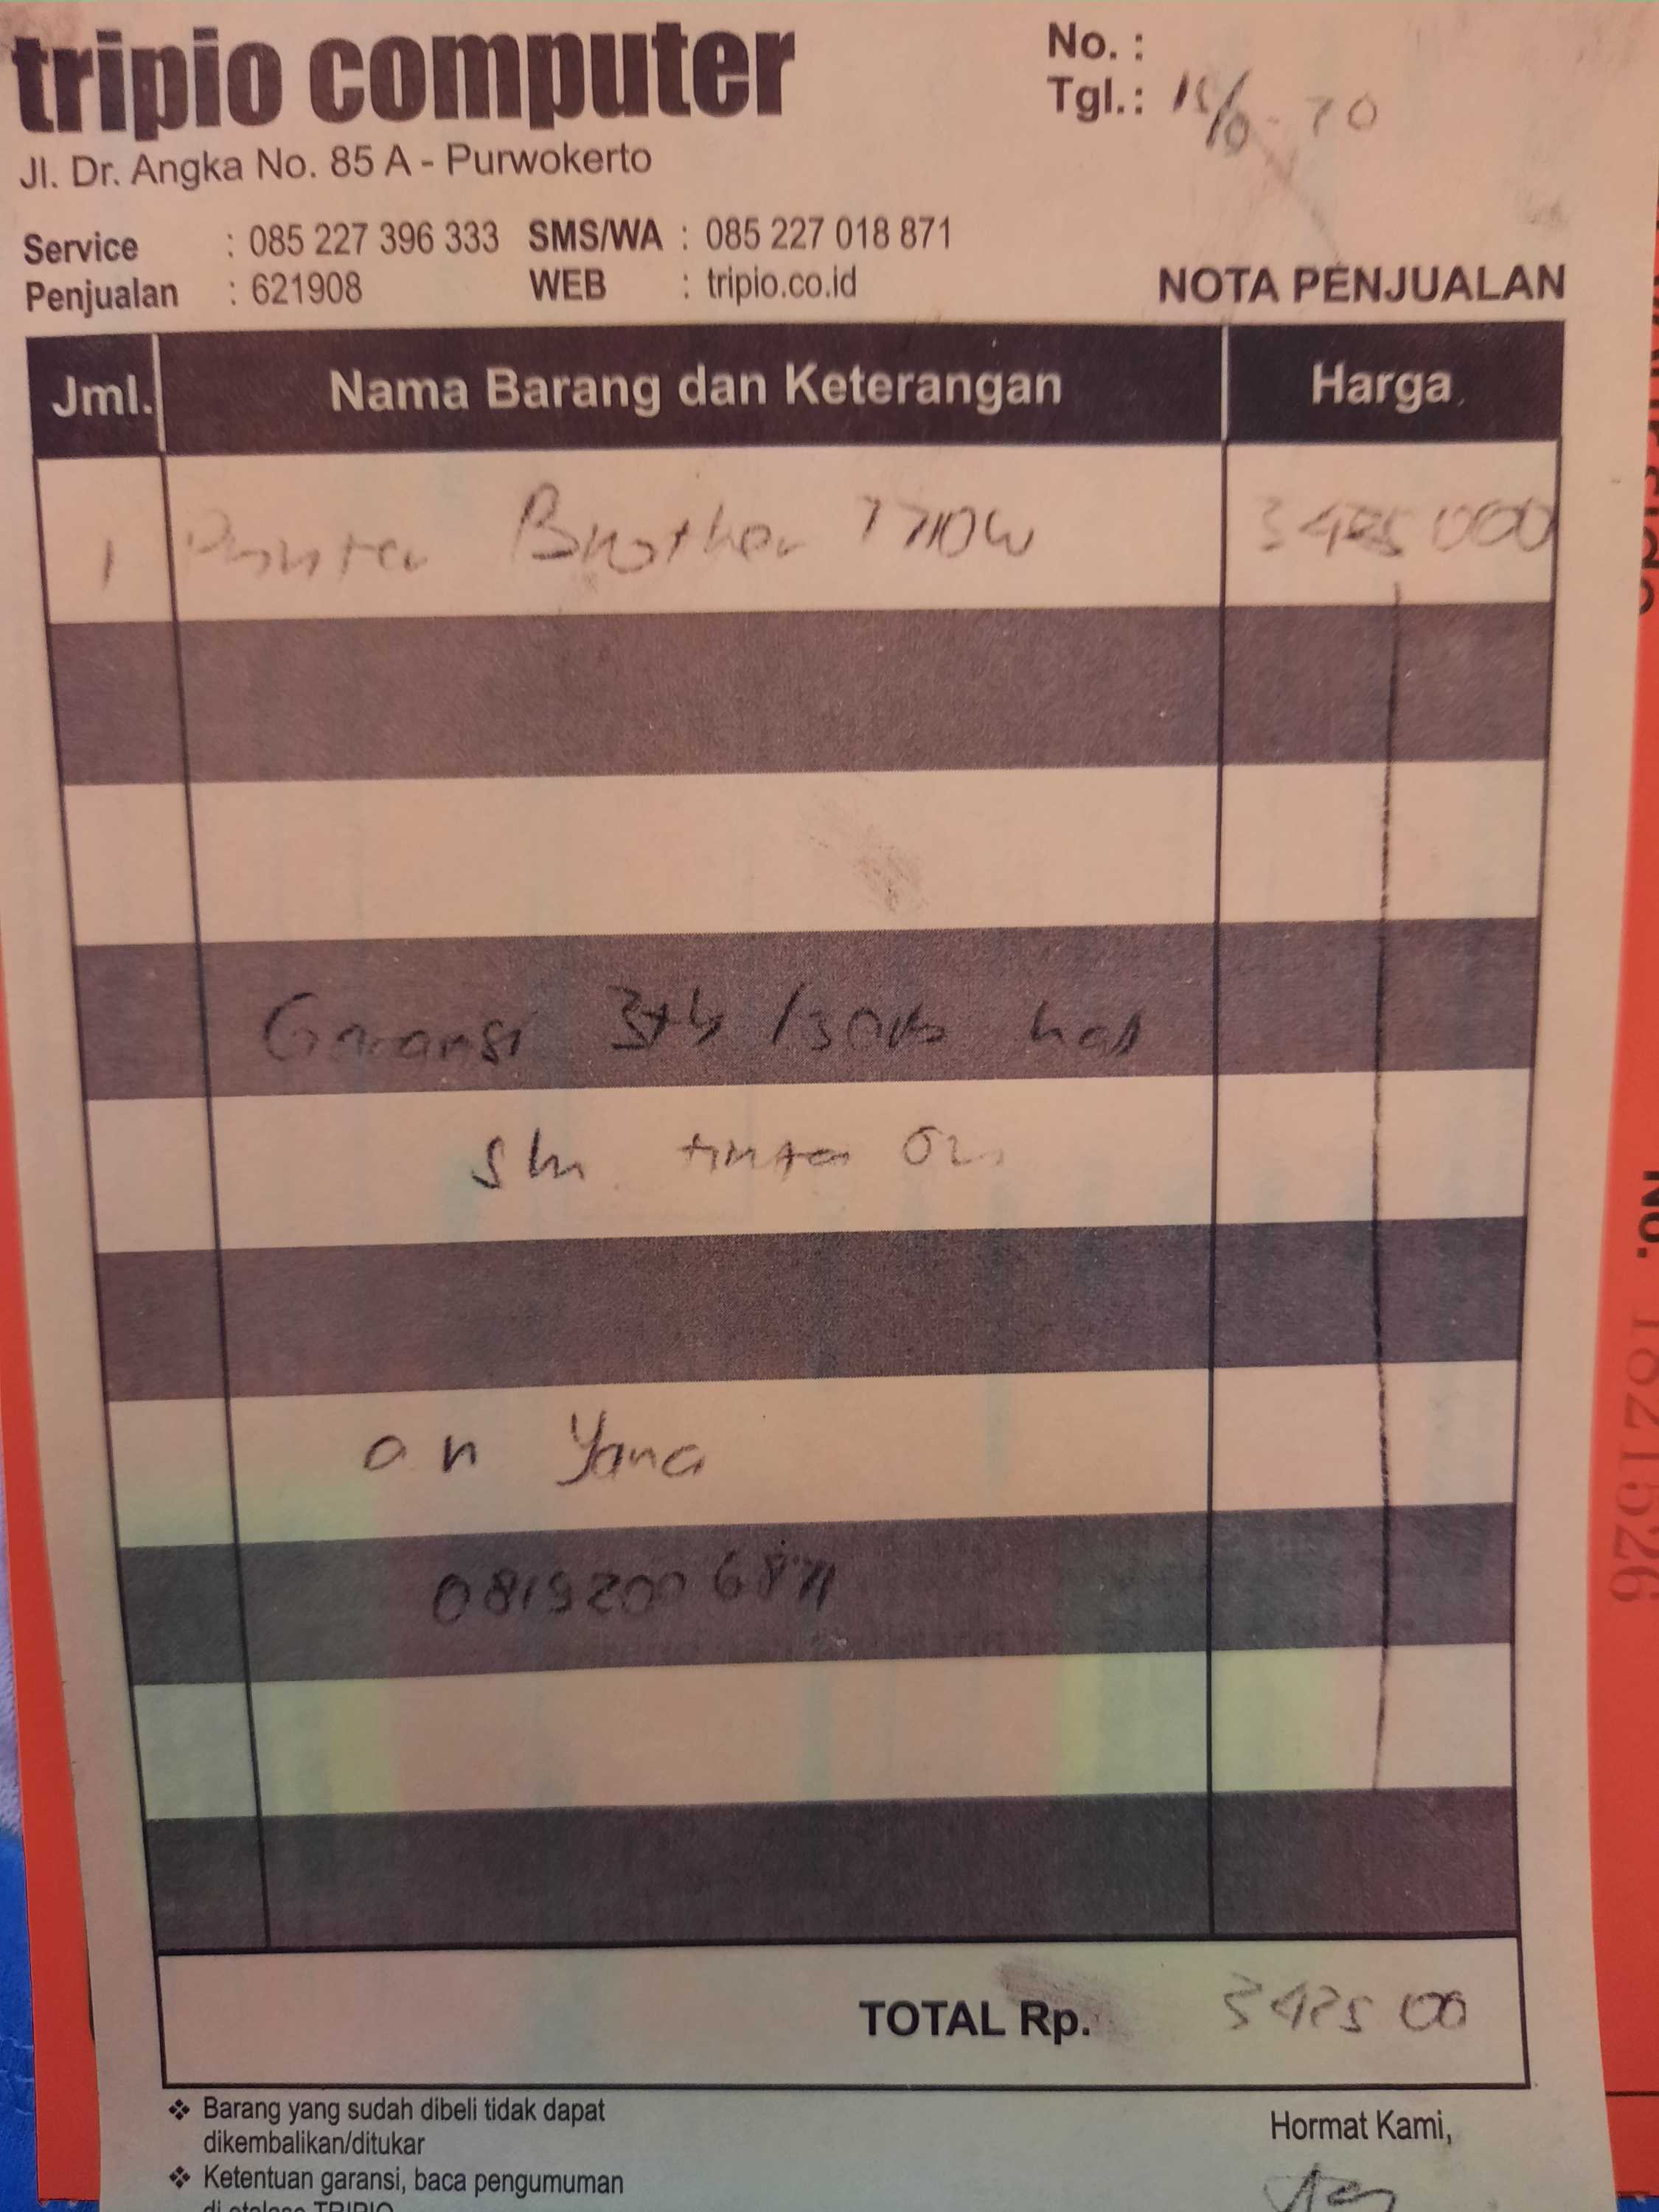 tripio computer
No. :
Tgl.:
Jl. Dr. Angka No. 85 A - Purwokerto
Service : 085 227 396 333 SMS/WA : 085 227 018 871
Penjualan : 621908 WEB : tripio.co.id
NOTA PENJUALAN
Jml. Nama Barang dan Keterangan Harga
1 Printer Brother T710W 3425000
Garansi 3th /30rb
tinta
an Yana
TOTAL Rp.
❖ Barang yang sudah dibeli tidak dapat
dikembalikan/ditukar
Hormat Kami,
❖ Ketentuan garansi, baca pengumuman
di etalase TRIPIO
No. 1821526